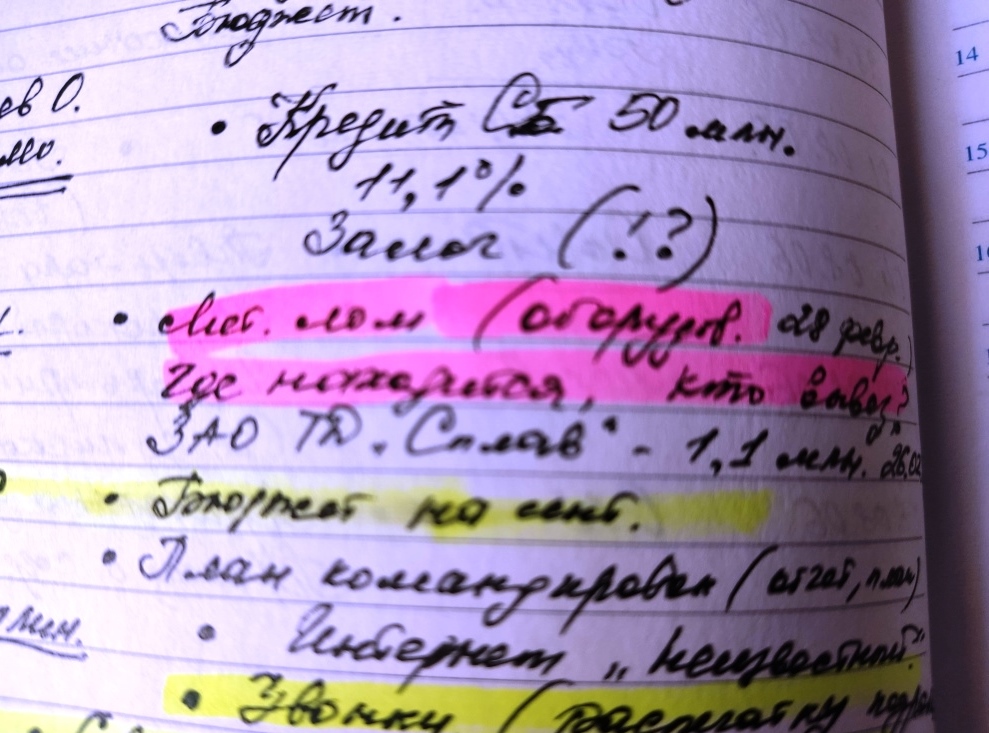 Бюджет.
14
ев О.
• Кредит СБ 50 млн.
мо.
15
11,1%
Залог (!?)
• Мет. лом (оборудов. 28 февр.)
Где находится, кто вывез?
ЗАО ТД "Сплав" - 1,1 млн. 26.02
• Бюджет на сент.
• План командирован (отчет, план)
• Интернет "Неизвестный"
• Звонки (распечатку